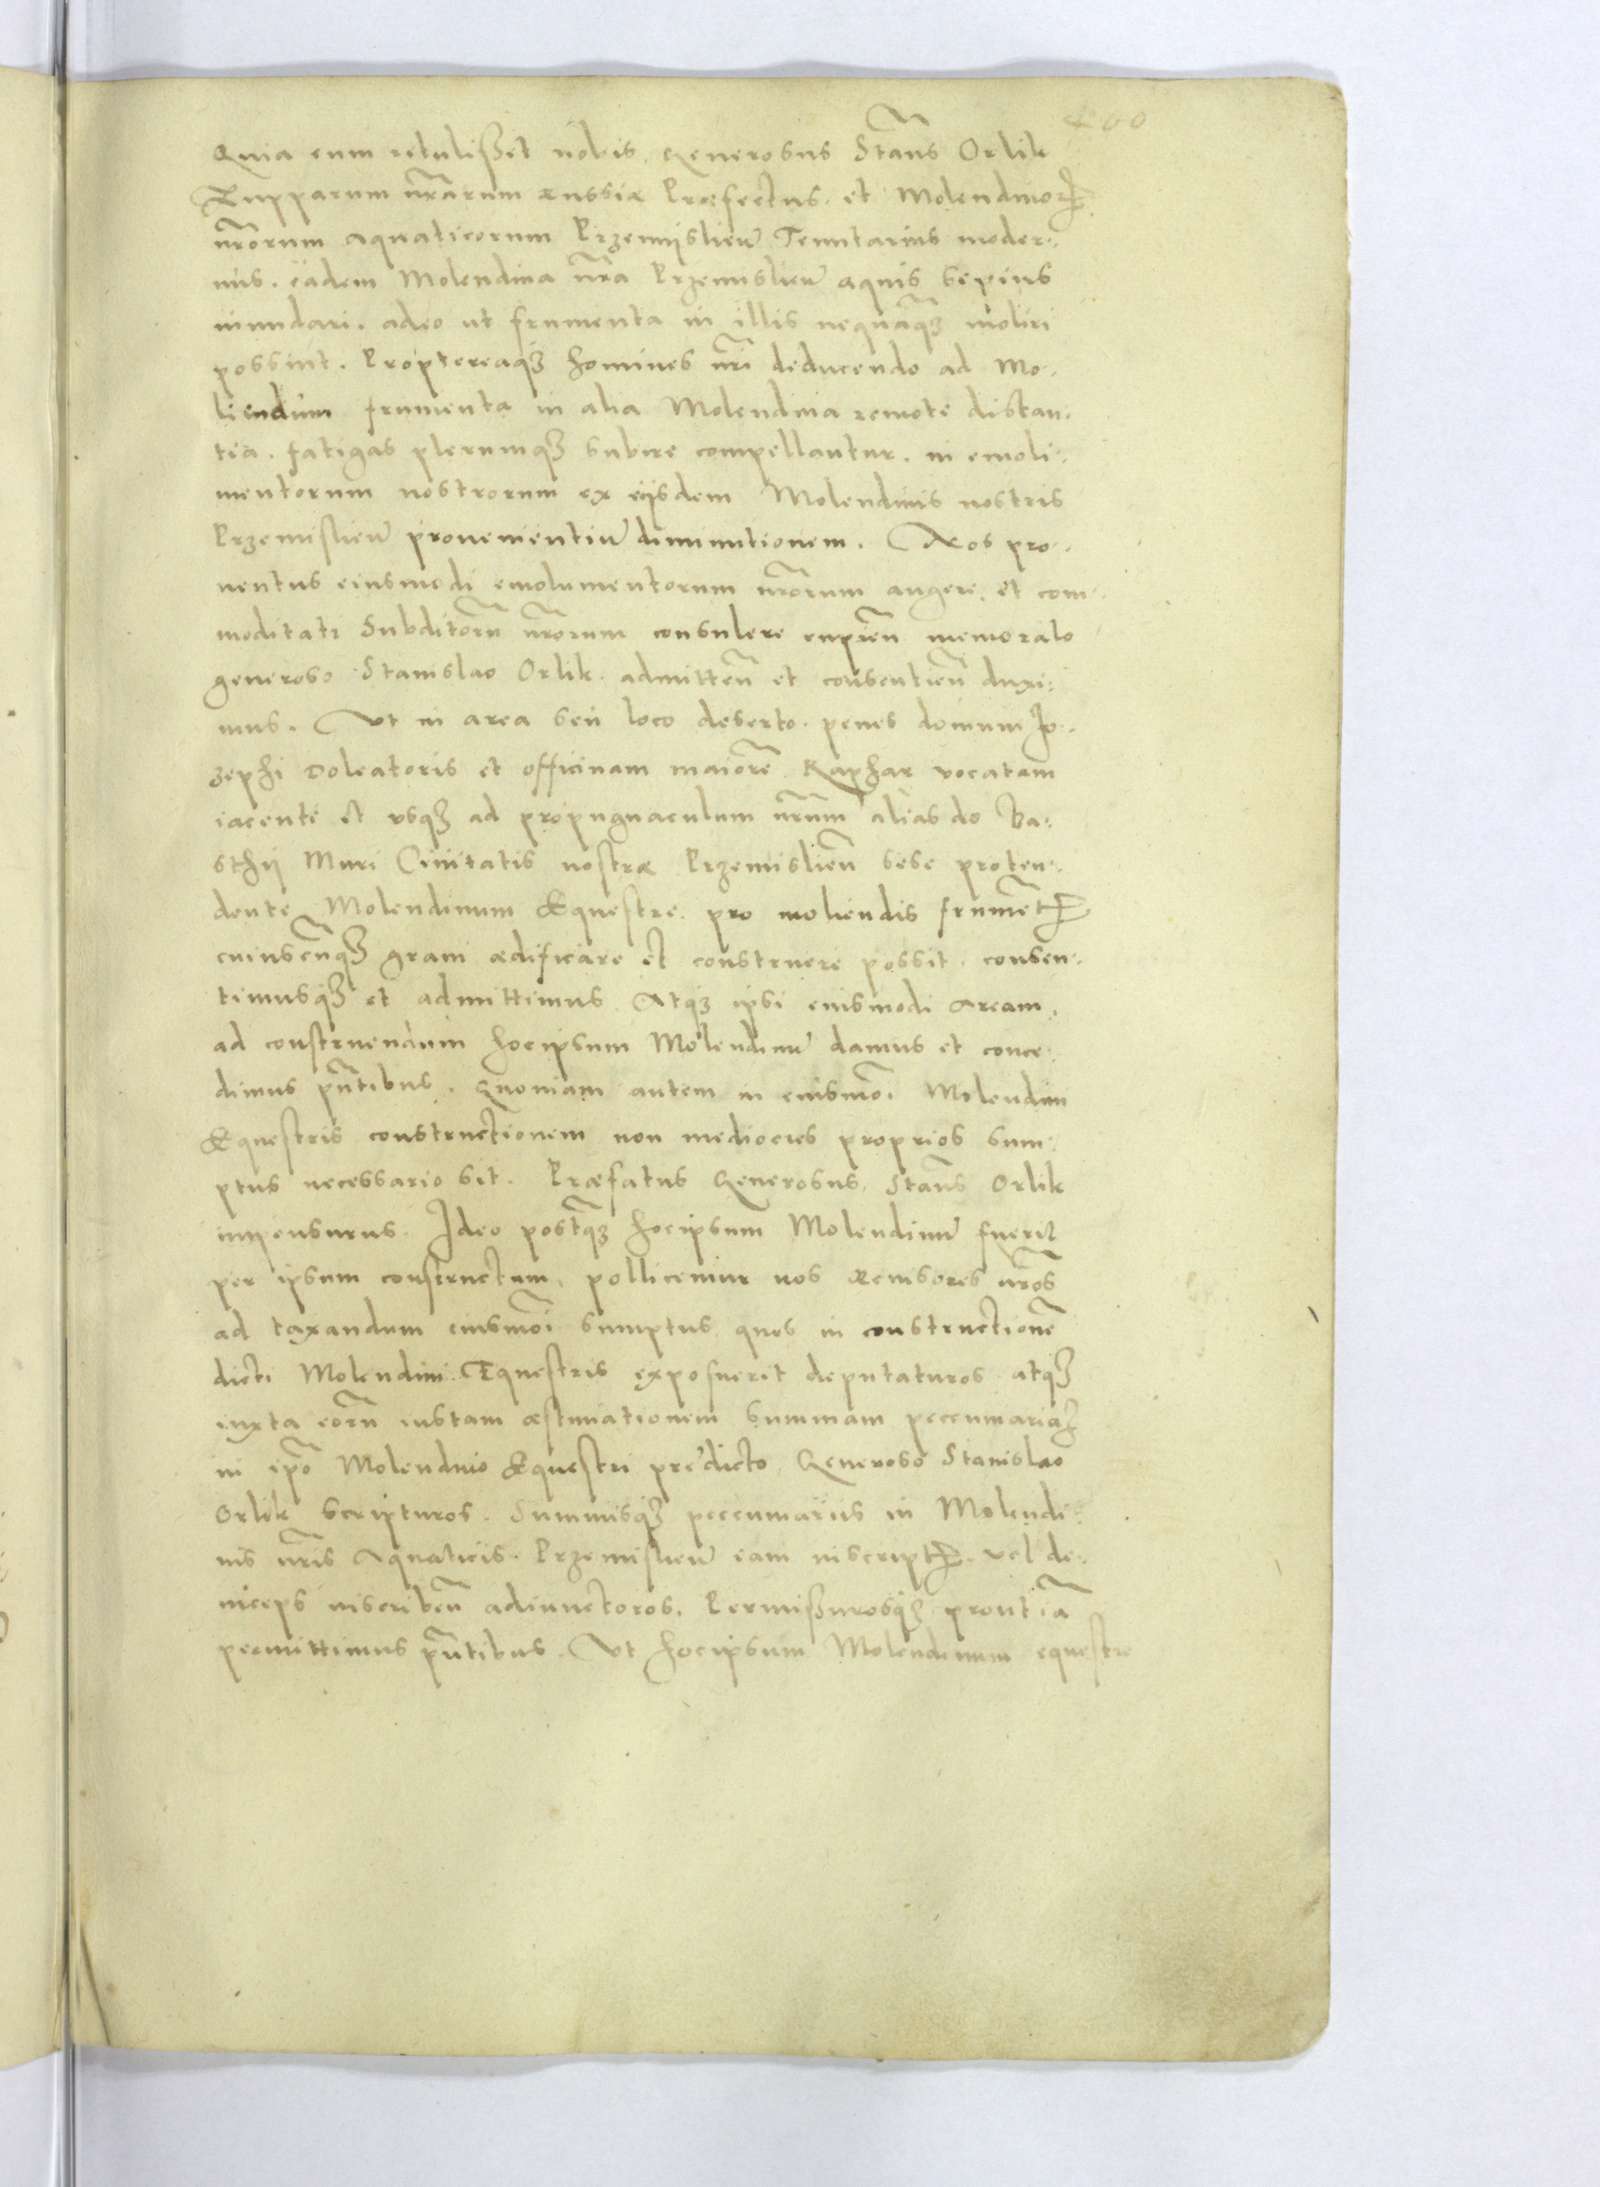 400
Quia cum retulisset nobis Generosus Stans Orlik
Zupparum nrarum Russiæ Præfectus et Molendinor
nrorum aquaticorum Przemislien Tenutarius moder-
nus. eadem Molendina nra Przemislien aquis sepius
inundari. adeo ut frumenta in illis nequaqz moliri
possint. Proptereaqz homines nri deducendo ad Mo-
liendum frumenta in alia Molendina remote distan-
tia. fatigas plerumqz subire compellantur. in emoli-
mentorum nostrorum ex eijsdem Molendinis nostris
Przemislien prouenientiu diminutionem. Nos pro-
uentus eiusmodi emolumentorum nrorum augere, et com-
moditati Subditoru nrorum consulere cupien memorato
generoso Stanislao Orlik. admitten et consentien duxi-
mus. Vt in area seu loco deserto. penes domum Jo-
zephi Doleatoris et officinam maiore Kaphar vocatam
iacenti et vsqz ad propugnaculum nrum alias do Ba-
sthij Muri Ciuitatis nostræ Przemislien sese proten-
dente Molendinum Equestre. pro moliendis frument
cuiuscunqz grani ædificare et construere possit. consen-
timusqz et admittimus Atqz ipsi eiusmodi Aream.
ad construendum hocipsum Molendinu damus et conce-
dimus pntibus. Quoniam autem in eiusmoi Molendini
Equestris constructionem non mediocres proprios sum-
ptus necessario sit. Præfatus Generosus Stans Orlik
impensurus. Ideo postqz hocipsum Molendinu fuerit
per ipsum constructum, pollicemur nos Reuisores nros
ad taxandum eiusmoi sumptus quos in constructione
dicti Molendini Equestris exposuerit deputaturos atqz
iuxta eoru iustam æstimationem summam pecuniaria
in ipo Molendino Equestri predicto Generoso Stanislao
Orlik scripturos. Summisqz pecuniarijs in Molendi-
nis nris Aquaticis Przemislien eam inscript. vel de-
inceps inscriben adiuncturos. Permissurosqz prout ia
permittimus pntibus. Vt hocipsum Molendinum equestre